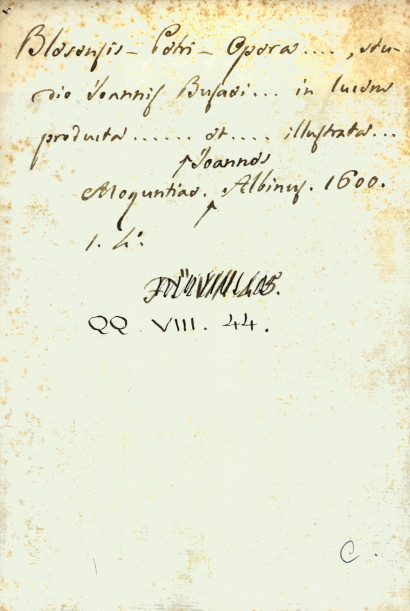 Blesensis - Petri - Opera ...., stu-
dio Joannis Busaei ... in lucem
producta ...... et .... illustrata ...
Joannes
Moguntiae. Albinus. 1600.
1. 4°.
QQ. VIII. 44.
C.